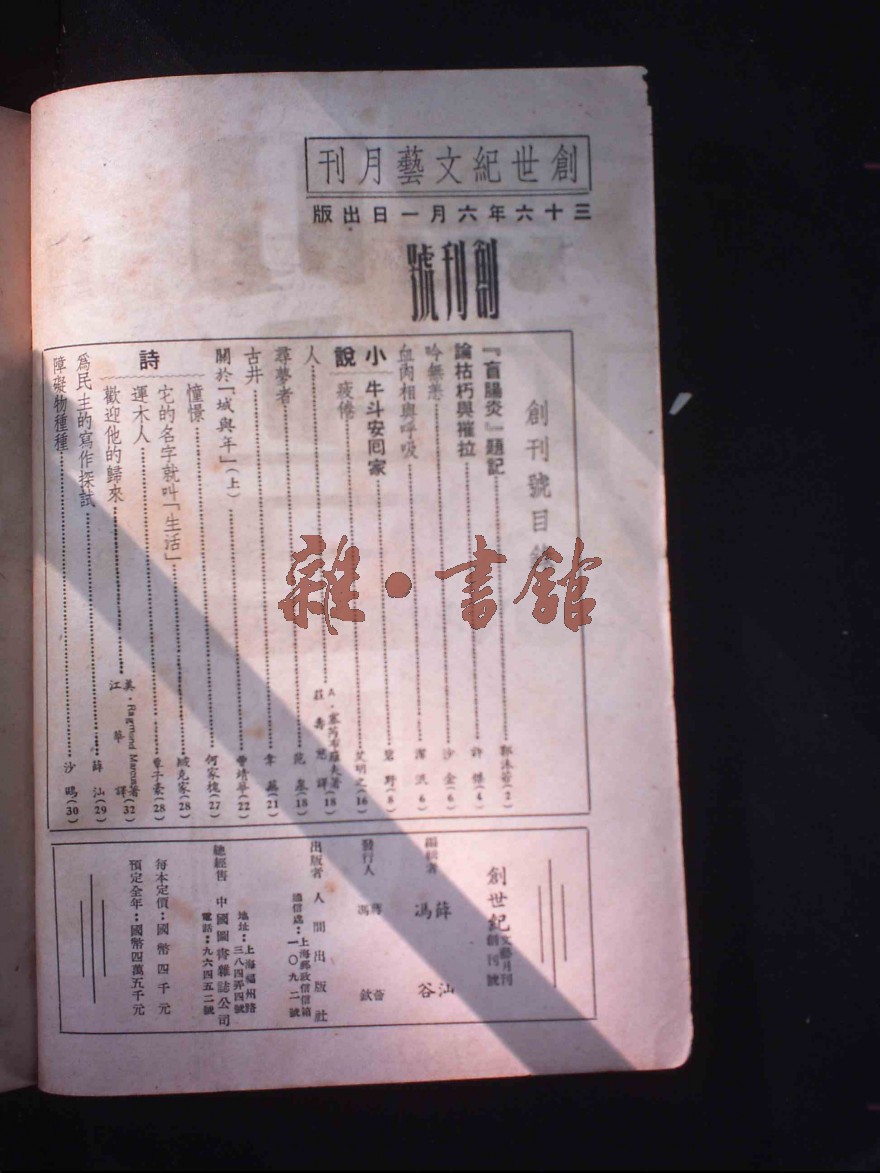 創世紀文藝月刊
三十六年六月一日出版
創刊號
創刊號目
『盲腸炎』題記 郭沫若(2)
論枯朽與摧拉 許傑(4)
吟無恙 沙金(6)
血肉相與呼吸 潔泯 6)
小說
牛斗安回家 碧野(8)
疲倦 艾明之(16)
人 A·塞 著 莊壽慈譯(18)
尋夢者 范泉(18)
古井 韋蕪(21)
關於「城與年」(上) 曹靖華(22)
詩
憧憬 何家槐(27)
它的名字就叫「生活」 臧克家(28)
運木人 覃子豪(28)
歡迎他的歸來 美·Raymond Marcus著 江華譯(32)
為民主的寫作探試 薛汕(29)
障礙物種種 沙鷗(30)
創世紀文藝月刊創刊號
編輯者 薛汕 馮谷
發行人 蔣 馮欽
出版者 人間出版社
通信處：上海郵政信箱一〇九二號
總經售 中國圖書雜誌公司
地址：上海福州路三八四弄四號
電話：九六四五二號
每本定價：國幣四千元
預定全年：國幣四萬五千元
雜·書館